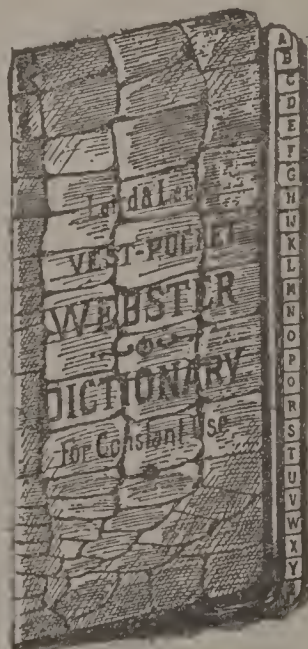 Laird & Lee's
VEST-POCKET
WEBSTER
DICTIONARY
For Constant Use
A
B
C
D
E
F
G
H
IJ
K
L
M
N
O
P
Q
R
S
T
U
V
W
X
Y